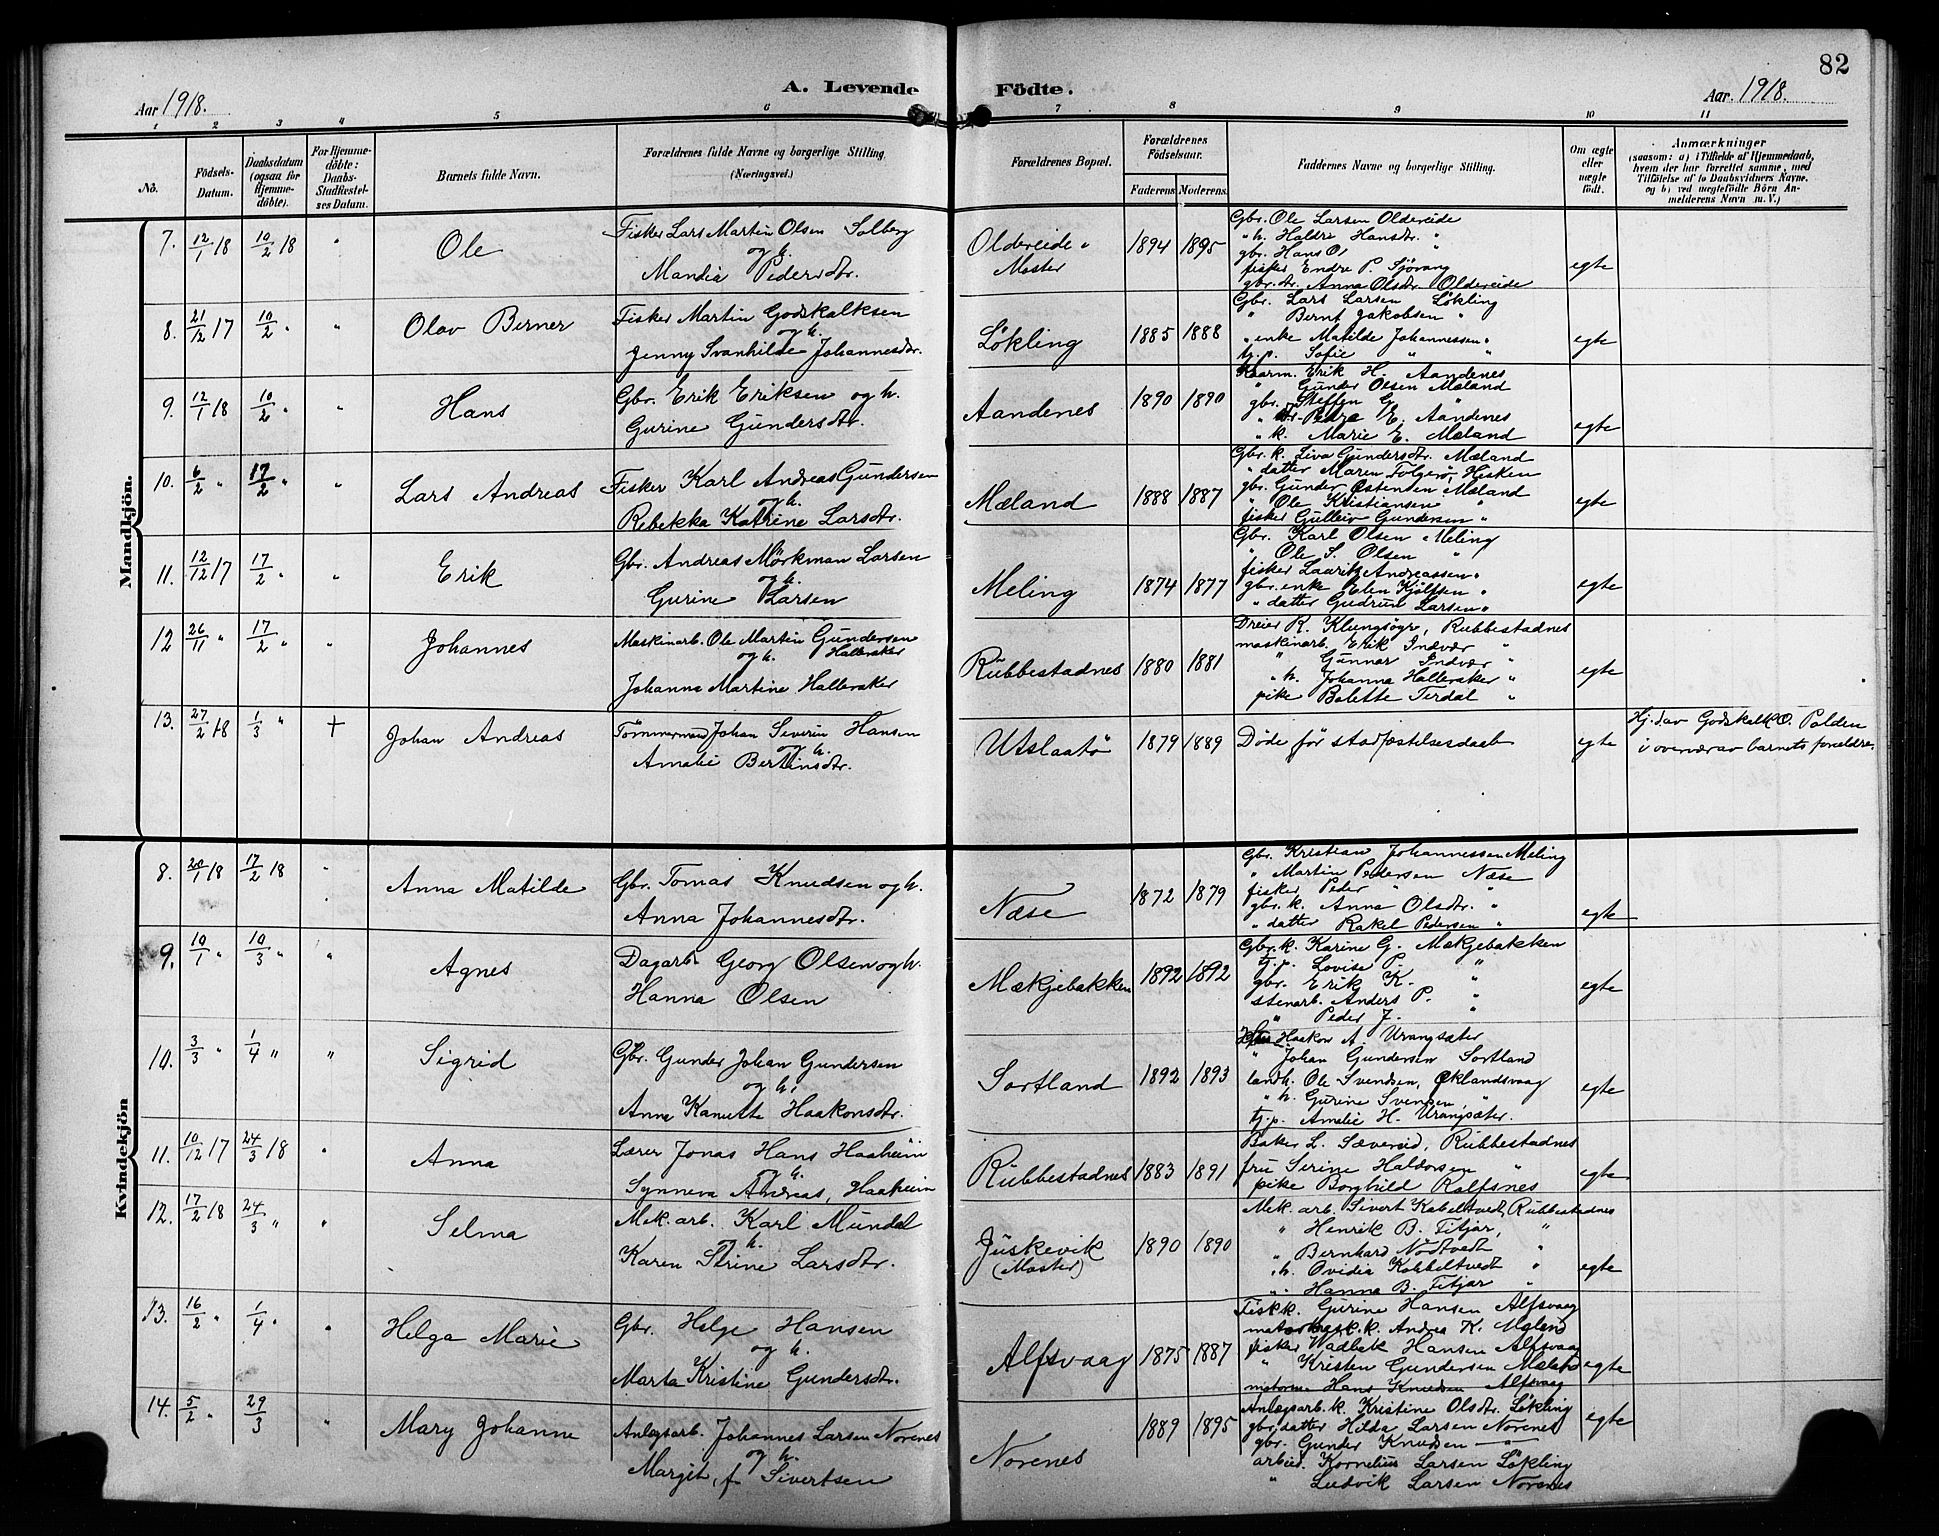 82
A. Levende Födte.
Aar 1918.
Aar. 1918.
1 2 3 4 5 6 7 8 9 10 11
No.
Födsels-Datum.
Daabsdatum (ogsaa for Hjemmedöbte).
For Hjemmedöbte: Daabs-Stadfæstelses Datum.
Barnets fulde Navn.
Forældrenes fulde Navne og borgerlige Stilling. (Næringsvei.)
Forældrenes Bopæl.
Forældrenes Födselsaar.
Faderens Moderens
Faddernes Navne og borgerlige Stilling.
Om ægte eller uægte födt.
Anmærkninger
(saasom: a) i Tilfælde af Hjemmedaab, hvem der har forrettet samme, med Tilföielse af to Daabsvidners Navne, og b) ved uegtefödte Börn Anmelderens Navn m. V.)
Mandkjön.
7. 12/1 18 10/2 18 " Ole
Fisker Lars Martin Olsen Solberg
og h.
Mandia Pedersdtr.
Oldereide Moster 1894 1895
Gbr. Ole Larsen Oldereide
" h. Haldri Hansdtr. "
gbr. Hans O
fisker Endre P. Sjövang
gbr. dr. Anna Olsdtr. Oldereide
egte
8. 21/12 17 10/2 " " Olav Berner
Fisker Martin Godskalksen
og h.
Jenny Svanhilde Johannesdtr.
Løkling 1885 1888
Gbr. Lars Larsen Løkling
" Bernt Jakobsen "
" enke Matilde Johannessen "
tj.p. Sofie " "
egte
9. 12/1 18 10/2 " " Hans
Gbr. Erik Eriksen og h.
Gurine Gundersdtr.
Aandenes 1890 1890
Kaarm. Erik H. Aandenes
" Gunder Olsen Mæland
gbr. Steffen G. "
" Petra E. Aandenes
" k. Marie E. Mæland
egte
10. 6/2 " 17/2 " " Lars Andreas
Fisker Karl Andreas Gundersen
og h.
Rebekka Katrine Larsdtr.
Mæland 1888 1887
Gbr. k. Liva Gundersdtr. Mæland
" datter Maren Folgerö, Hisken
gbr. Gunder Østensen Mæland
" Ole Kristiansen "
fisker Gulleiv Gundersen "
egte
11. 12/12 17 17/2 " " Erik
Gbr. Andreas Mörkman Larsen
og h.
Gurine Larsen
Meling 1874 1877
Gbr. Karl Olsen Meling
" Ole S. Olsen "
fisker Lauritz Andreassen "
gbr. enke Elen Kjölfsen "
" datter Gudrun Larsen "
egte
12 26/11 " 17/2 " " Johannes
Maskinarb. Ole Martin Gundersen
og h. Halleraker
Johanna Martine Halleraker
Rubbestadnes 1880 1881
Dreier K. Klungsöyr, Rubbestadnes
maskinarb. Erik Indvær "
" Gunnar Indvær "
" h. Johanna Halleraker "
pike Bolette Tirdal "
egte
13. 27/2 18 1/3 " † Johan Andreas
Tömmermand Johan Severin Hansen
og h.
Amalie Bertinsdtr.
Utslaatö 1879 1889
Döde för stadfæstelsesdaab
egte
Hj.d. av Godskalk O. Polden
i overvær av barnets forældre.
Kvindekjön
8. 20/1 18 17/2 18 " Anna Matilde
Gbr. Tomas Knudsen og h.
Anna Johannesdtr.
Næse 1872 1879
Gbr. Kristian Johannessen Meling
" Martin Pedersen Næse
fisker Peder " "
gbr. k. Anna Olsdtr. "
" datter Rakel Pedersen "
egte
9. 10/1 " 10/3 " " Agnes
Dagarb. Georg Olsen og h.
Hanna Olsen
Mækjebakken 1892 1892
Gbr. k. Karine G. Mækjebakken
tj.p. Lovise P. "
gbr. Erik K. "
stenarb. Anders P. "
" Peder J. "
egte
10. 3/3 " 1/4 " " Sigrid
Gbr. Gunder Johan Gundersen
og h.
Anna Kanutte Haakonsdtr.
Sortland 1892 1893
Haakon A. Urangsæter
" Johan Gundersen Sortland
landh. Ole Svendsen, Øklandsvaag
" h. Gurine Svensen, "
tj.p. Amalie H. Urangsæter.
egte
11. 10/12 17 24/3 18 " Anna
Lærer Jonas Hans Haaheim
og h.
Synneva Andreas. Haaheim
Rubbestadnes 1883 1891
Baker L. Sæversid, Rubbestadnes
fru Serine Haldorsen "
pike Borghild Rolfsnes "
egte
12. 17/2 18 24/3 " " Selma
Mek. arb. Karl Mundal
og h.
Karen Strine Larsdtr.
Juskevik (Moster) 1890 1890
Mek. arb. Sivert Kobeltvedt, Rubbestadnes
" Henrik B. Fitjar, "
" Bernhard Nödtvedt "
" h. Ovidia Kobbeltvedt "
" " Hanna B. Fitjar "
egte
13. 16/2 " 1/4 " " Helga Marie
Gbr. Helge Hansen
og h.
Marta Kristine Gundersdtr.
Alfsvaag 1875 1887
Fisk k. Gurine Hansen Alfsvaag
k. Andrea K. Mæland
fisker Wadbek Hansen Alfsvaag
" Kristen Gundersen Mæland
Hans Knudsen Alfsvaag
egte
14. 5/2 " 29/3 " Mary Johanne
Anlegsarb. Johannes Larsen Norenes
og h.
Margit, f. Sivertsen
Norenes 1889 1895
Anlegsarb. k. Kristine Olsdtr. Løkling
gbr. datter Hilda Larsen Norenes
gbr. Gunder Knudsen —
arbeid. Kornelius Larsen Løkling
" Ludvik Larsen Norenes
egte